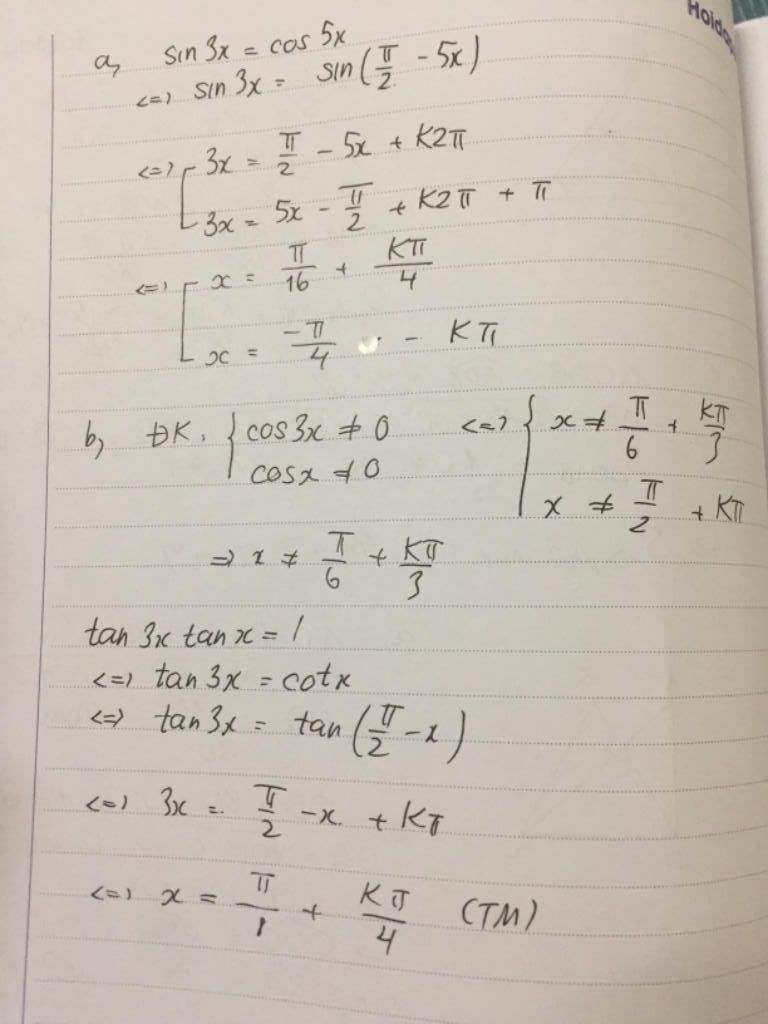 Holda
a, sin 3x = cos 5x
<=> sin 3x = sin(π/2 - 5x)
<=> [ 3x = π/2 - 5x + K2π
3x = 5x - π/2 + K2π + π
<=> [ x = π/16 + Kπ/4
x = -π/4 - Kπ
b, ĐK: { cos3x ≠ 0 <=> { x ≠ π/6 + Kπ/3
cosx ≠ 0 x ≠ π/2 + Kπ
=> x ≠ π/6 + Kπ/3
tan 3x tan x = 1
<=> tan 3x = cot x
<=> tan 3x = tan(π/2 - x)
<=> 3x = π/2 - x + Kπ
<=> x = π/1 + Kπ/4 (TM)